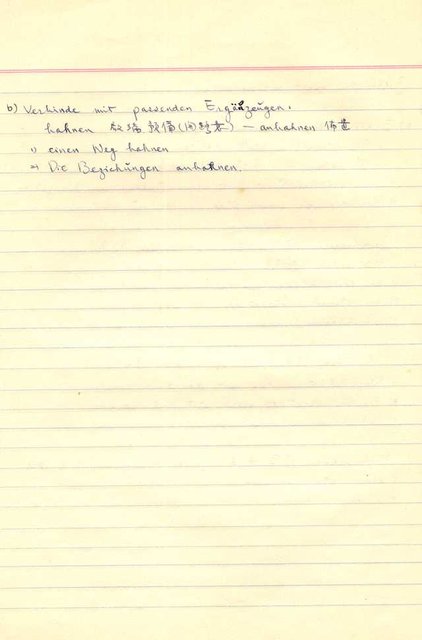 b) Verbinde mit passenden Ergänzeŭgen.
bahnen — anbahnen
1) einen Weg bahnen
2) Die Beziehŭngen anbahnen.